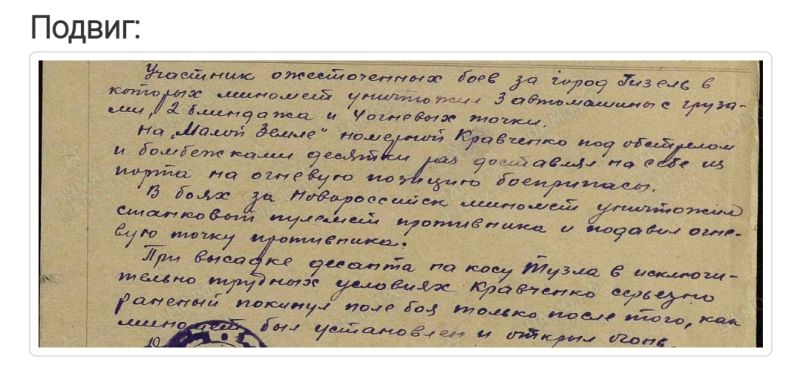 Подвиг:
Участник ожесточенных боев за город Гизель в
которых миномет уничтожил 3 автомашины с груза-
ми, 2 блиндажа и 4 огневых точки.
На „Малой Земле" номерной Кравченко под обстрелом
и бомбежками десятки раз доставлял на себе из
порта на огневую позицию боеприпасы.
В боях за Новороссийск миномет уничтожил
станковый пулемет противника и подавил огне-
вую точку противника.
При высадке десанта на косу Тузла в исключи-
тельно трудных условиях Кравченко серьезно
раненый покинул поле боя только после того, как
миномет был установлен и открыл огонь.